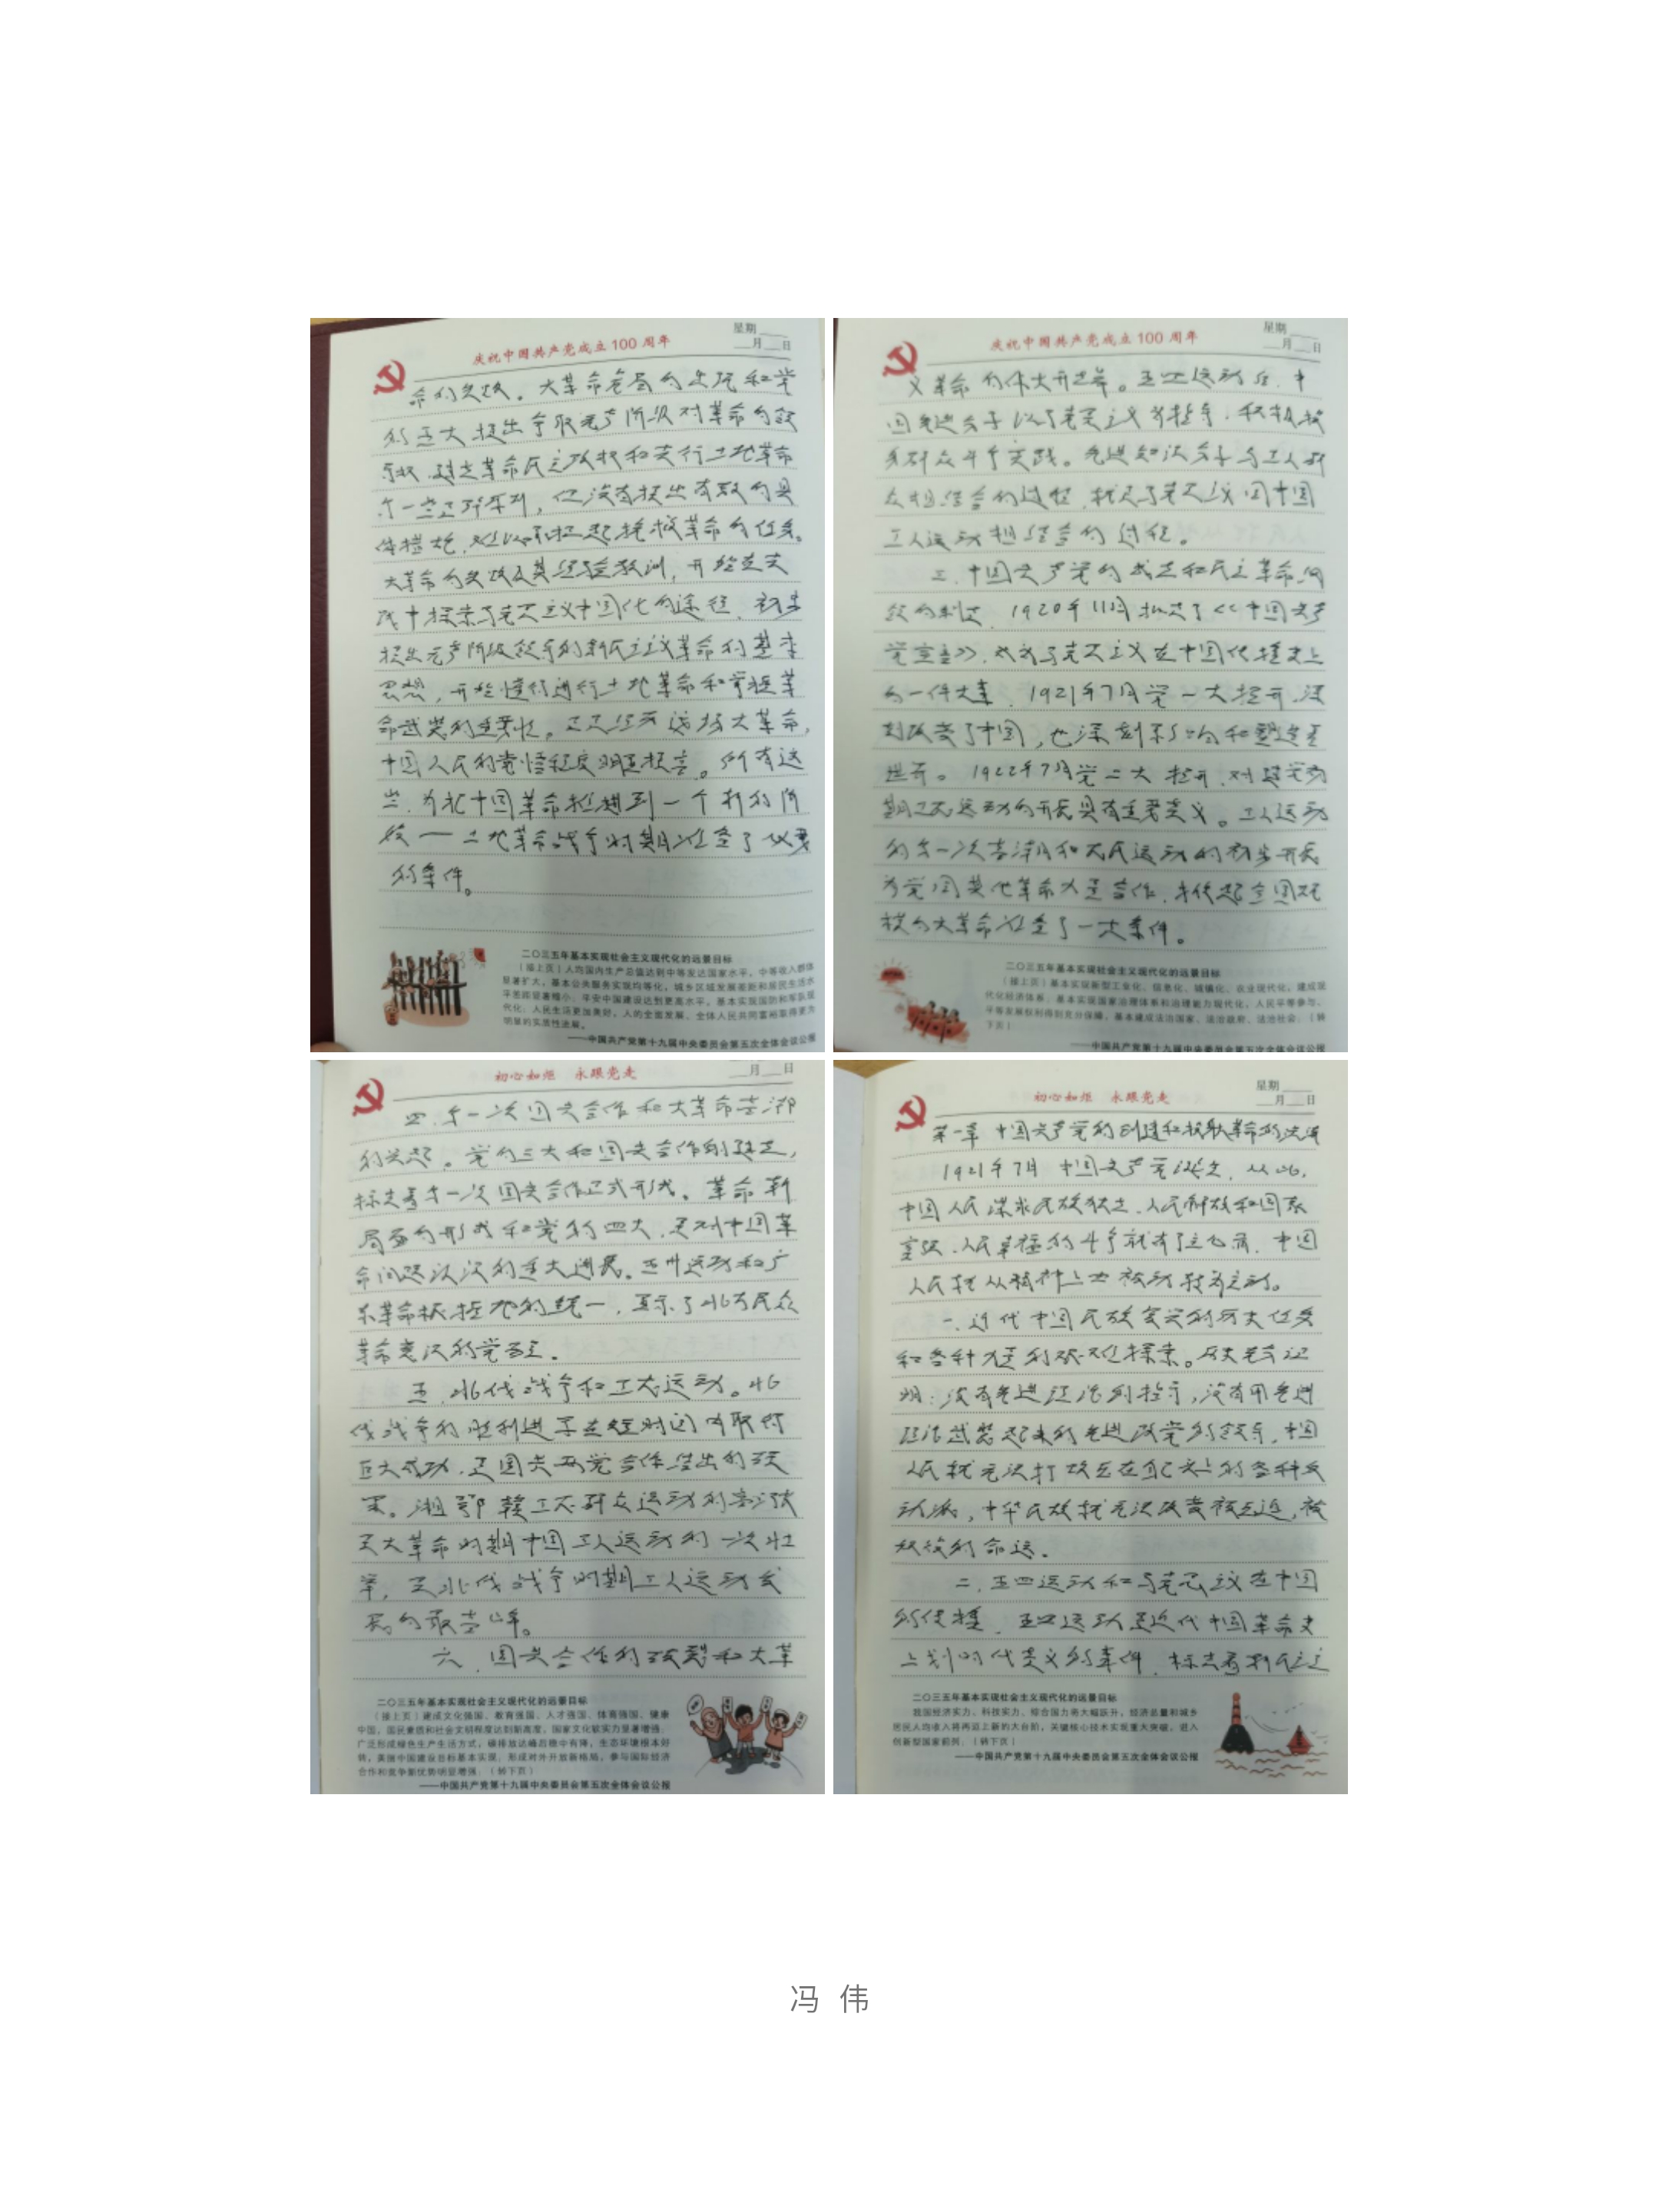 星期
月 日
庆祝中国共产党成立100周年
命的失败。大革命危局的出现和党
的五大提出争取无产阶级对革命的领
导权、建立革命民主政权和实行土地革命
一些正确原则,但没有提出有效的具
体措施,难以承担起挽救革命的任务。
大革命的失败及其经验教训,开始在实
践中探索马克思主义中国化的途径,初步
提出无产阶级领导的新民主主义革命的基本
思想,开始懂得进行土地革命和掌握革
命武装的重要性。正是经历这场大革命,
中国人民的觉悟程度明显提高。所有这
些,为把中国革命推进到一个新的阶
段——土地革命战争时期准备了必要
的条件。
二〇三五年基本实现社会主义现代化的远景目标
(接上页)人均国内生产总值达到中等发达国家水平,中等收入群体
显著扩大,基本公共服务实现均等化,城乡区域发展差距和居民生活水
平差距显著缩小;平安中国建设达到更高水平,基本实现国防和军队现
代化;人民生活更加美好,人的全面发展、全体人民共同富裕取得更为
明显的实质性进展。
——中国共产党第十九届中央委员会第五次全体会议公报
星期
月 日
庆祝中国共产党成立100周年
义革命的伟大开端。五四运动后,中
国先进分子以马克思主义为指导,积极投
身群众斗争实践。先进知识分子与工人群
众相结合的过程,就是马克思主义同中国
工人运动相结合的过程。
三、中国共产党的成立和民主革命纲
领的制定。1920年11月拟定了《中国共产
党宣言》,成为马克思主义在中国传播史上
的一件大事。1921年7月党一大召开,深
刻改变了中国,也深刻影响和塑造着
世界。1922年7月党二大召开,对建党初
期工农运动的开展具有重要意义。工人运动
的第一次高潮和农民运动的初步开展
为党同其他革命力量合作,掀起全国规
模的大革命准备了一定条件。
二〇三五年基本实现社会主义现代化的远景目标
(接上页)基本实现新型工业化、信息化、城镇化、农业现代化,建成现
代化经济体系;基本实现国家治理体系和治理能力现代化,人民平等参与、
平等发展权利得到充分保障,基本建成法治国家、法治政府、法治社会;(转
下页)
——中国共产党第十九届中央委员会第五次全体会议公报
月 日
初心如炬 永跟党走
四、第一次国共合作和大革命高潮
的兴起。党的三大和国共合作的建立,
标志着第一次国共合作正式形成。革命新
局面的形成和党的四大,是对中国革
命问题认识的重大进展。五卅运动和广
东革命根据地的统一,显示了北方民众
革命意识的觉醒。
五、北伐战争和工农运动。北
伐战争的胜利进军在短时间内取得
巨大成功,是国共两党合作结出的硕
果。湘鄂赣工农群众运动的高涨
是大革命时期中国工人运动的一次壮
举,是北伐战争时期工人运动发
展的最高峰。
六、国共合作的破裂和大革
二〇三五年基本实现社会主义现代化的远景目标
(接上页)建成文化强国、教育强国、人才强国、体育强国、健康
中国,国民素质和社会文明程度达到新高度,国家文化软实力显著增强;
广泛形成绿色生产生活方式,碳排放达峰后稳中有降,生态环境根本好
转,美丽中国建设目标基本实现;形成对外开放新格局,参与国际经济
合作和竞争新优势明显增强;(转下页)
——中国共产党第十九届中央委员会第五次全体会议公报
星期
月 日
初心如炬 永跟党走
第一章 中国共产党的创建和投身革命的洪流
1921年7月中国共产党诞生,从此,
中国人民谋求民族独立、人民解放和国家
富强、人民幸福的斗争就有了主心骨,中国
人民就从精神上由被动转为主动。
一、近代中国民族复兴的历史任务
和各种力量的艰难探索。历史充分证
明:没有先进理论的指导,没有用先进
理论武装起来的先进政党的领导,中国
人民就无法打败压在自己头上的各种反
动派,中华民族就无法改变被压迫,被
奴役的命运。
二、五四运动和马克思主义在中国
的传播。五四运动是近代中国革命史
上划时代意义的事件,标志着新民主主
二〇三五年基本实现社会主义现代化的远景目标
我国经济实力、科技实力、综合国力将大幅跃升,经济总量和城乡
居民人均收入将再迈上新的大台阶,关键核心技术实现重大突破,进入
创新型国家前列;(转下页)
——中国共产党第十九届中央委员会第五次全体会议公报
冯 伟